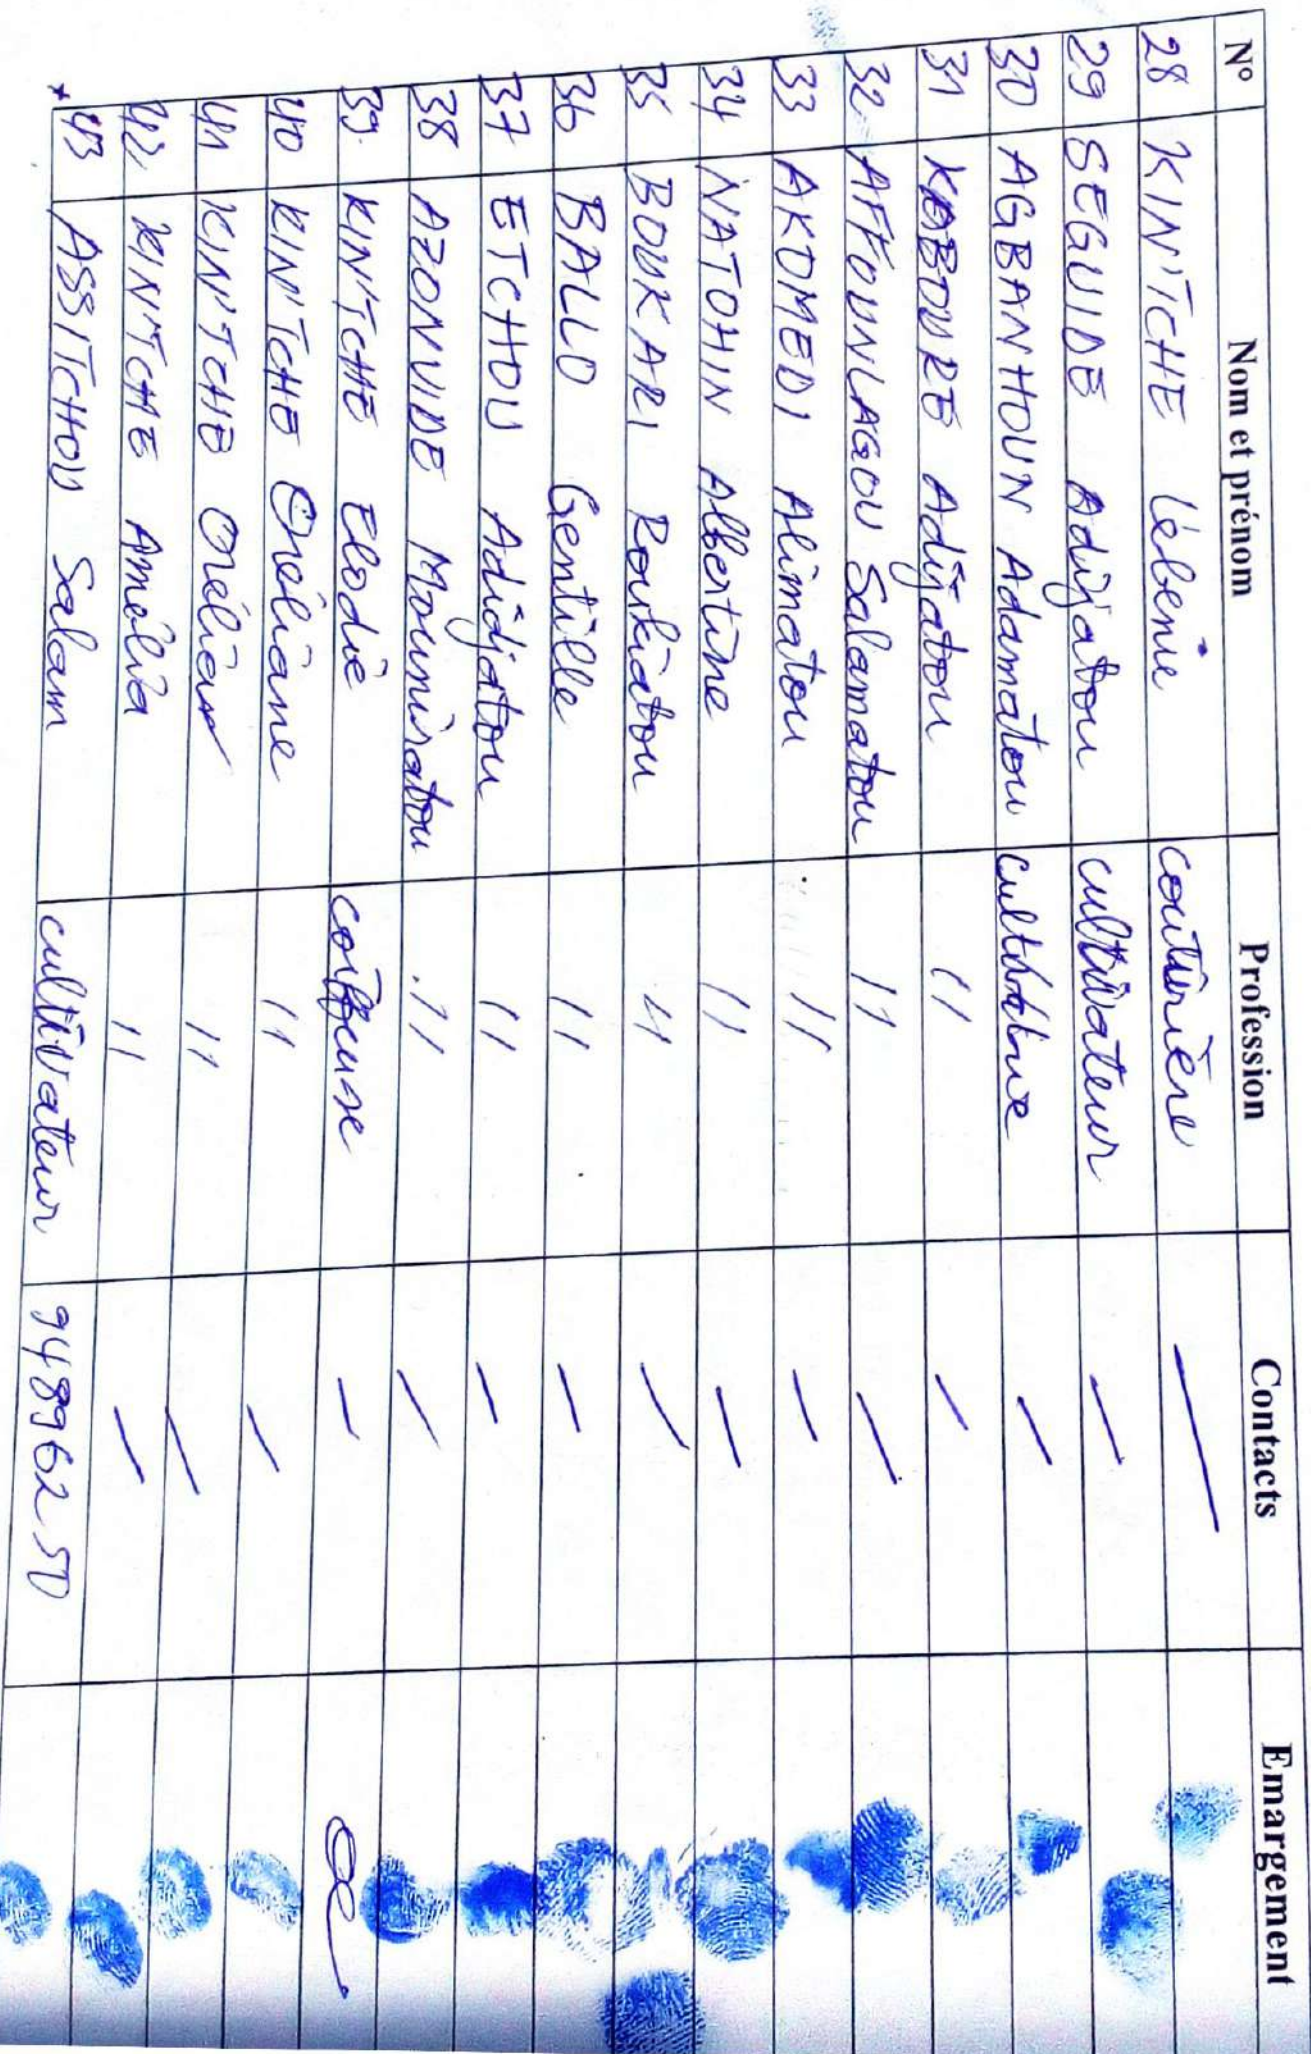 N° Nom et prénom Profession Contacts Emargement
28 KIN'TCHE Lébenie couturière —
29 SEGUIDE Adijatou cultivateur —
30 AGBANHOUN Adamatou cultivatrice —
31 KABOURE Adijatou 11 —
32 AFFOUNLAGOU Salamatou 11 —
33 AKOMEDI Alimatou 11 —
34 NATOHIN Albertine 11 —
35 BOUKARI Roukiatou 11 —
36 BALLO Gentille 11 —
37 ETCHOU Adidjatou 11 —
38 AZONVIDE Mouniratou 11 —
39. KIN'TCHE Elodie coiffeuse —
40 KIN'TCHE Oréliane 11 —
41 KIN'TCHE 11 —
42, KIN'TCHE Amélia 11 —
43 ASSITCHOU Salam cultivateur 94896250